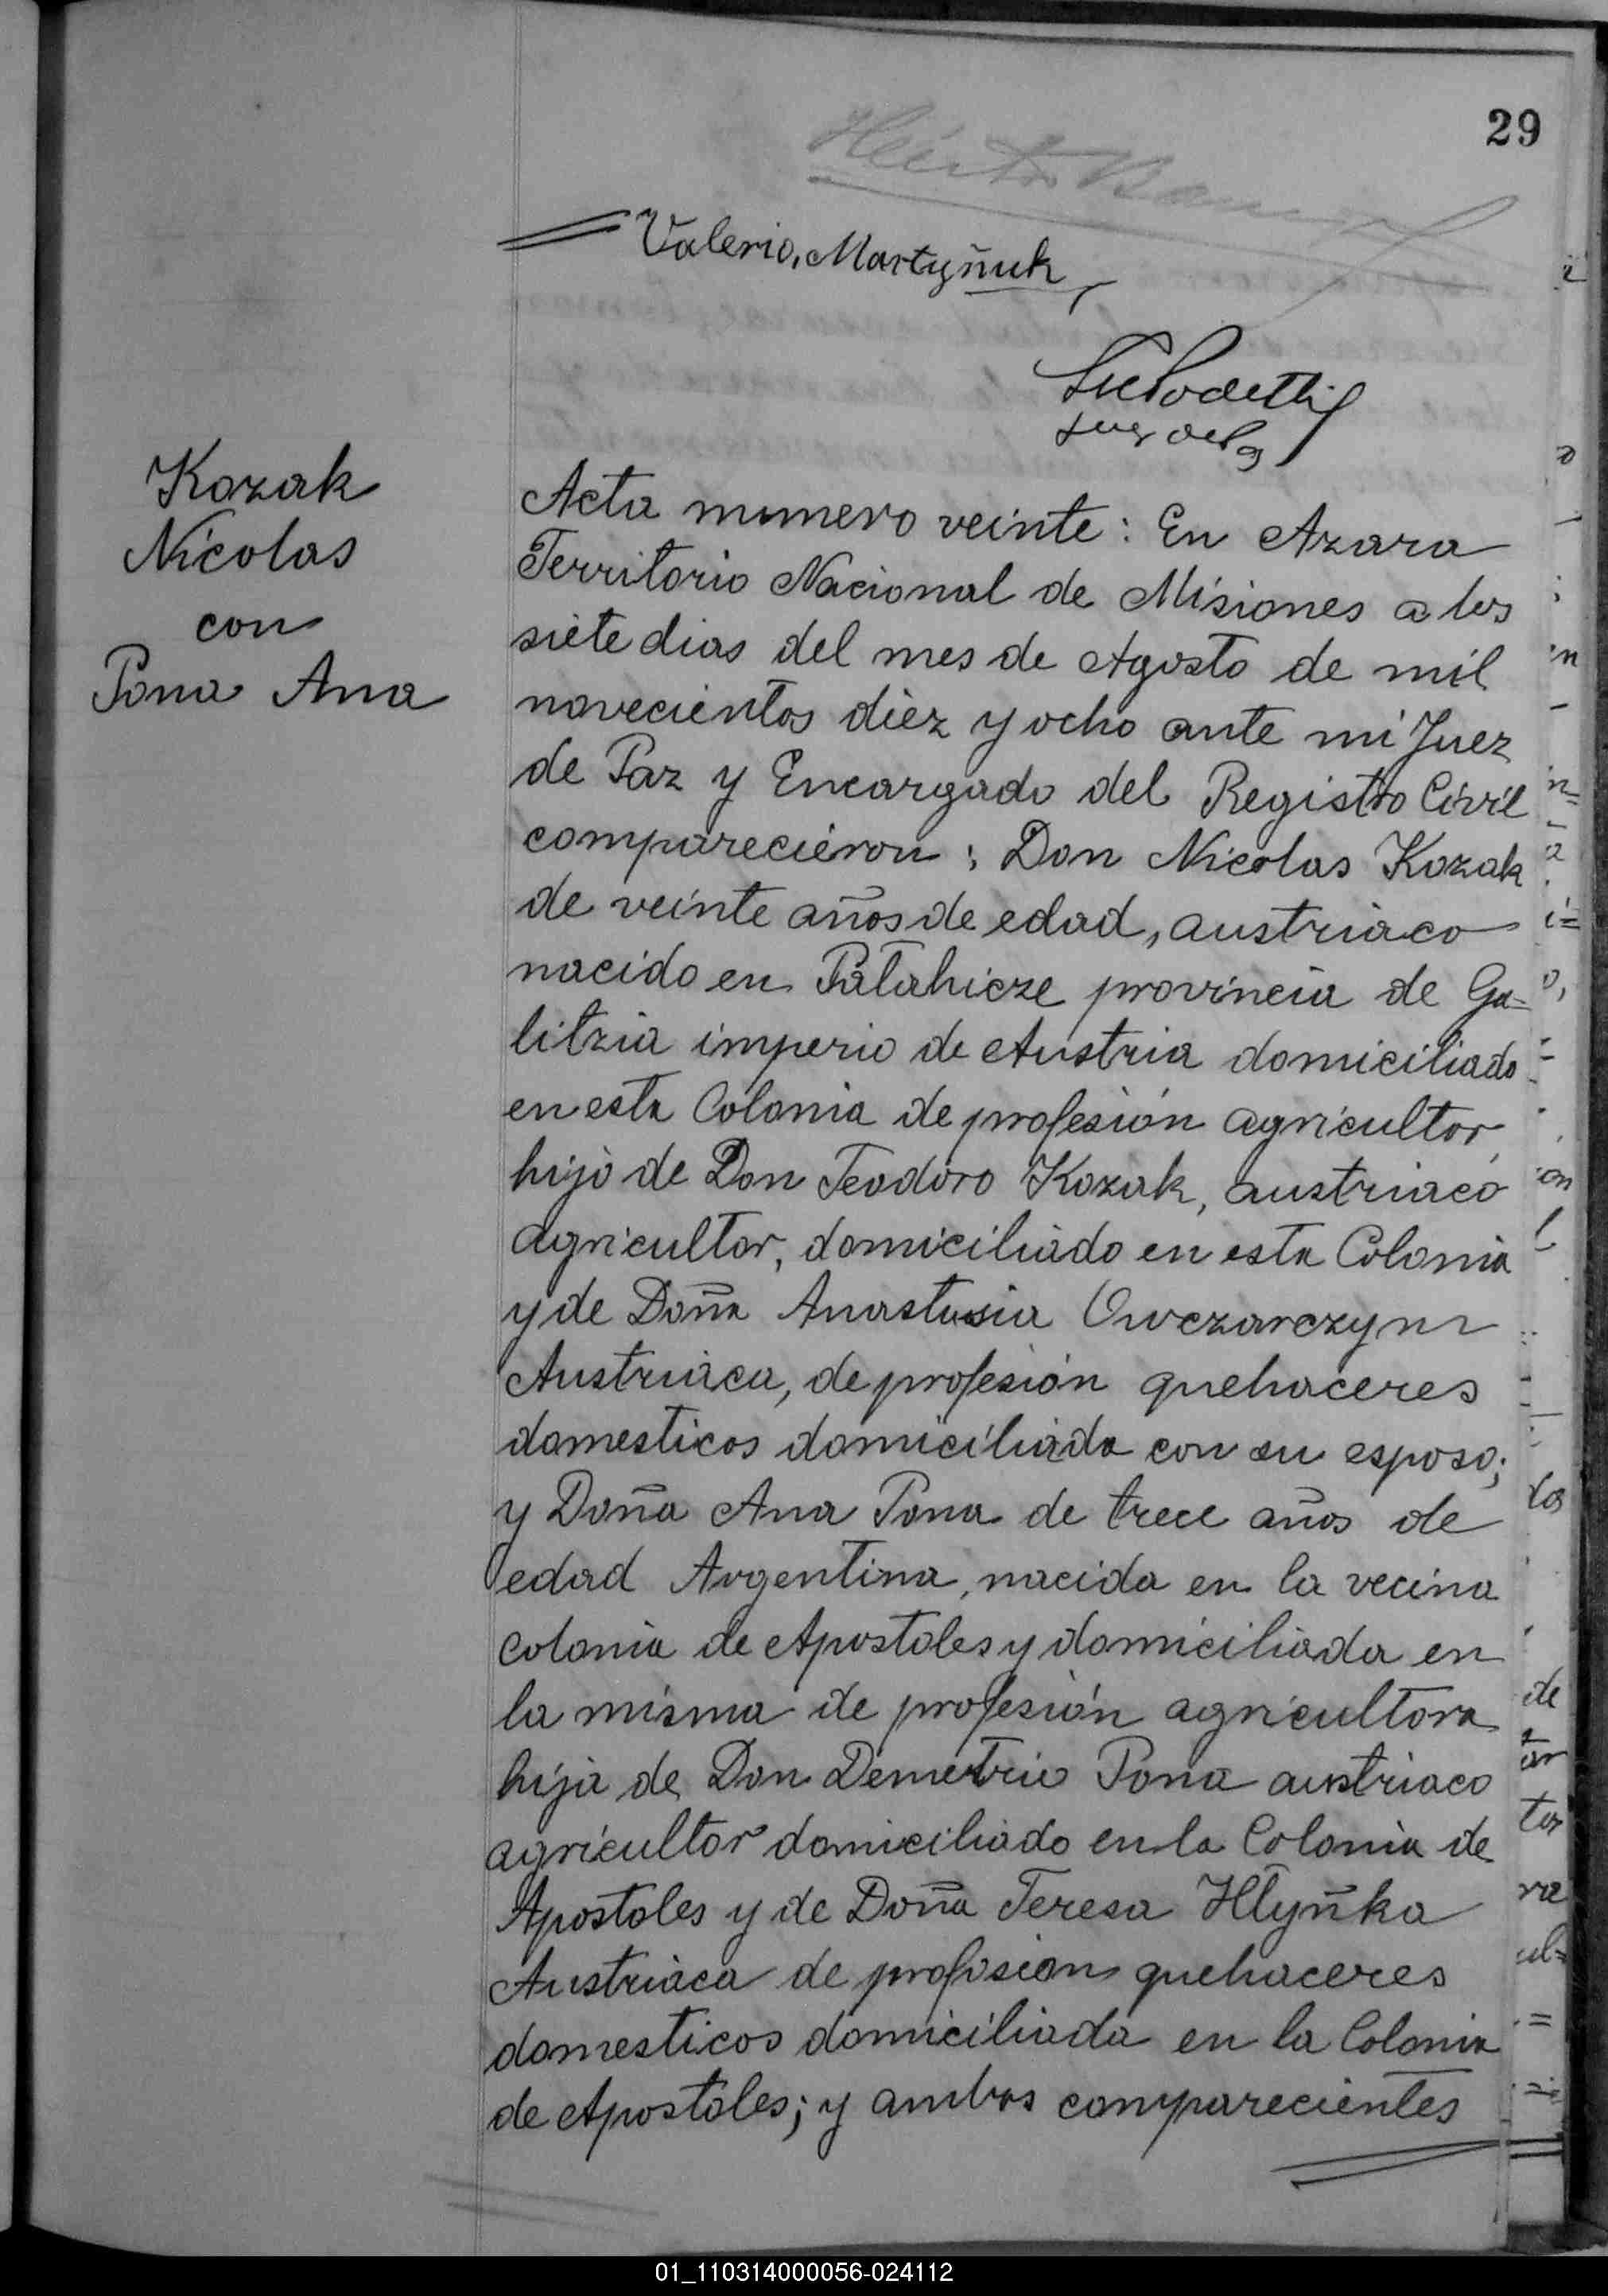 29
Valerio, Martyñuk
Kozak
Nicolas
con
Pona Ana
Acta numero veinte: En Azara
Territorio Nacional de Misiones a los
siete dias del mes de Agosto de mil
novecientos diez y ocho ante mi Juez
de Paz y Encargado del Registro Civil
comparecieron: Don Nicolas Kozak
de veinte años de edad, austriaco
nacido en Patahicze provincia de Ga=
litzia imperio de Austria domiciliado
en esta Colonia de profesión agricultor,
hijo de Don Teodoro Kozak, austriaco
agricultor, domiciliado en esta Colonia
y de Doña Anastasia Owczarczyn
Austriaca, de profesión quehaceres
domesticos domiciliada con su esposo;
y Doña Ana Pona de trece años de
edad Argentina, nacida en la vecina
colonia de Apostoles y domiciliada en
la misma de profesión agricultora
hija de Don Demetrio Pona austriaco
agricultor domiciliado en la Colonia de
Apostoles y de Doña Teresa Hlyñka
Austriaca de profesion quehaceres
domesticos domiciliada en la Colonia
de Apostoles; y ambos comparecientes
01_110314000056-024112